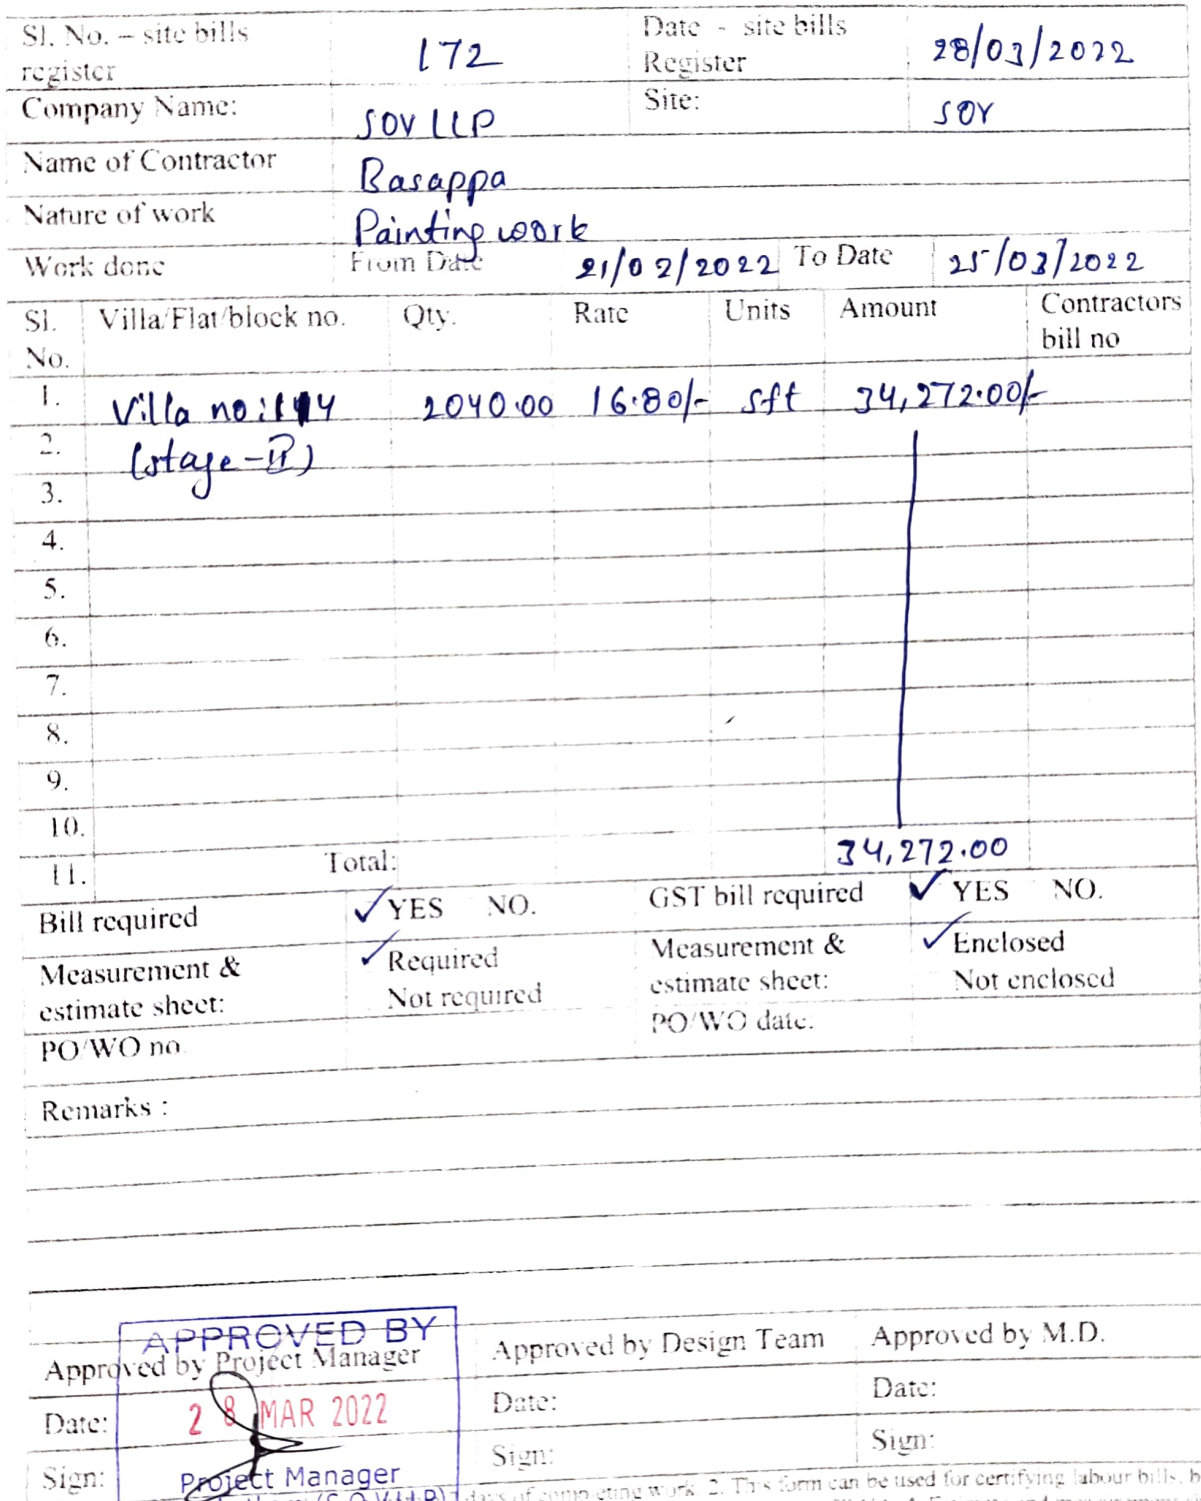 Sl. No. – site bills register 172 Date - site bills Register 28/03/2022
Company Name: SOV LLP Site: SOV
Name of Contractor Basappa
Nature of work Painting work
Work done From Date 21/02/2022 To Date 25/03/2022
Sl. No. Villa/Flat/block no. Qty. Rate Units Amount Contractors bill no
1. Villa no: 2040.00 16.80/- sft 34,272.00/-
2. (stage-II)
3.
4.
5.
6.
7.
8.
9.
10.
11. Total: 34,272.00
Bill required ✓ YES NO. GST bill required ✓ YES NO.
Measurement & estimate sheet: ✓ Required Not required Measurement & estimate sheet: ✓ Enclosed Not enclosed
PO/WO no. PO/WO date:
Remarks :
APPROVED BY
Approved by Project Manager Approved by Design Team Approved by M.D.
Date: 28 MAR 2022 Date: Date:
Sign: Project Manager Sign: Sign:
days of completing work. 2. This form can be used for certifying labour bills,